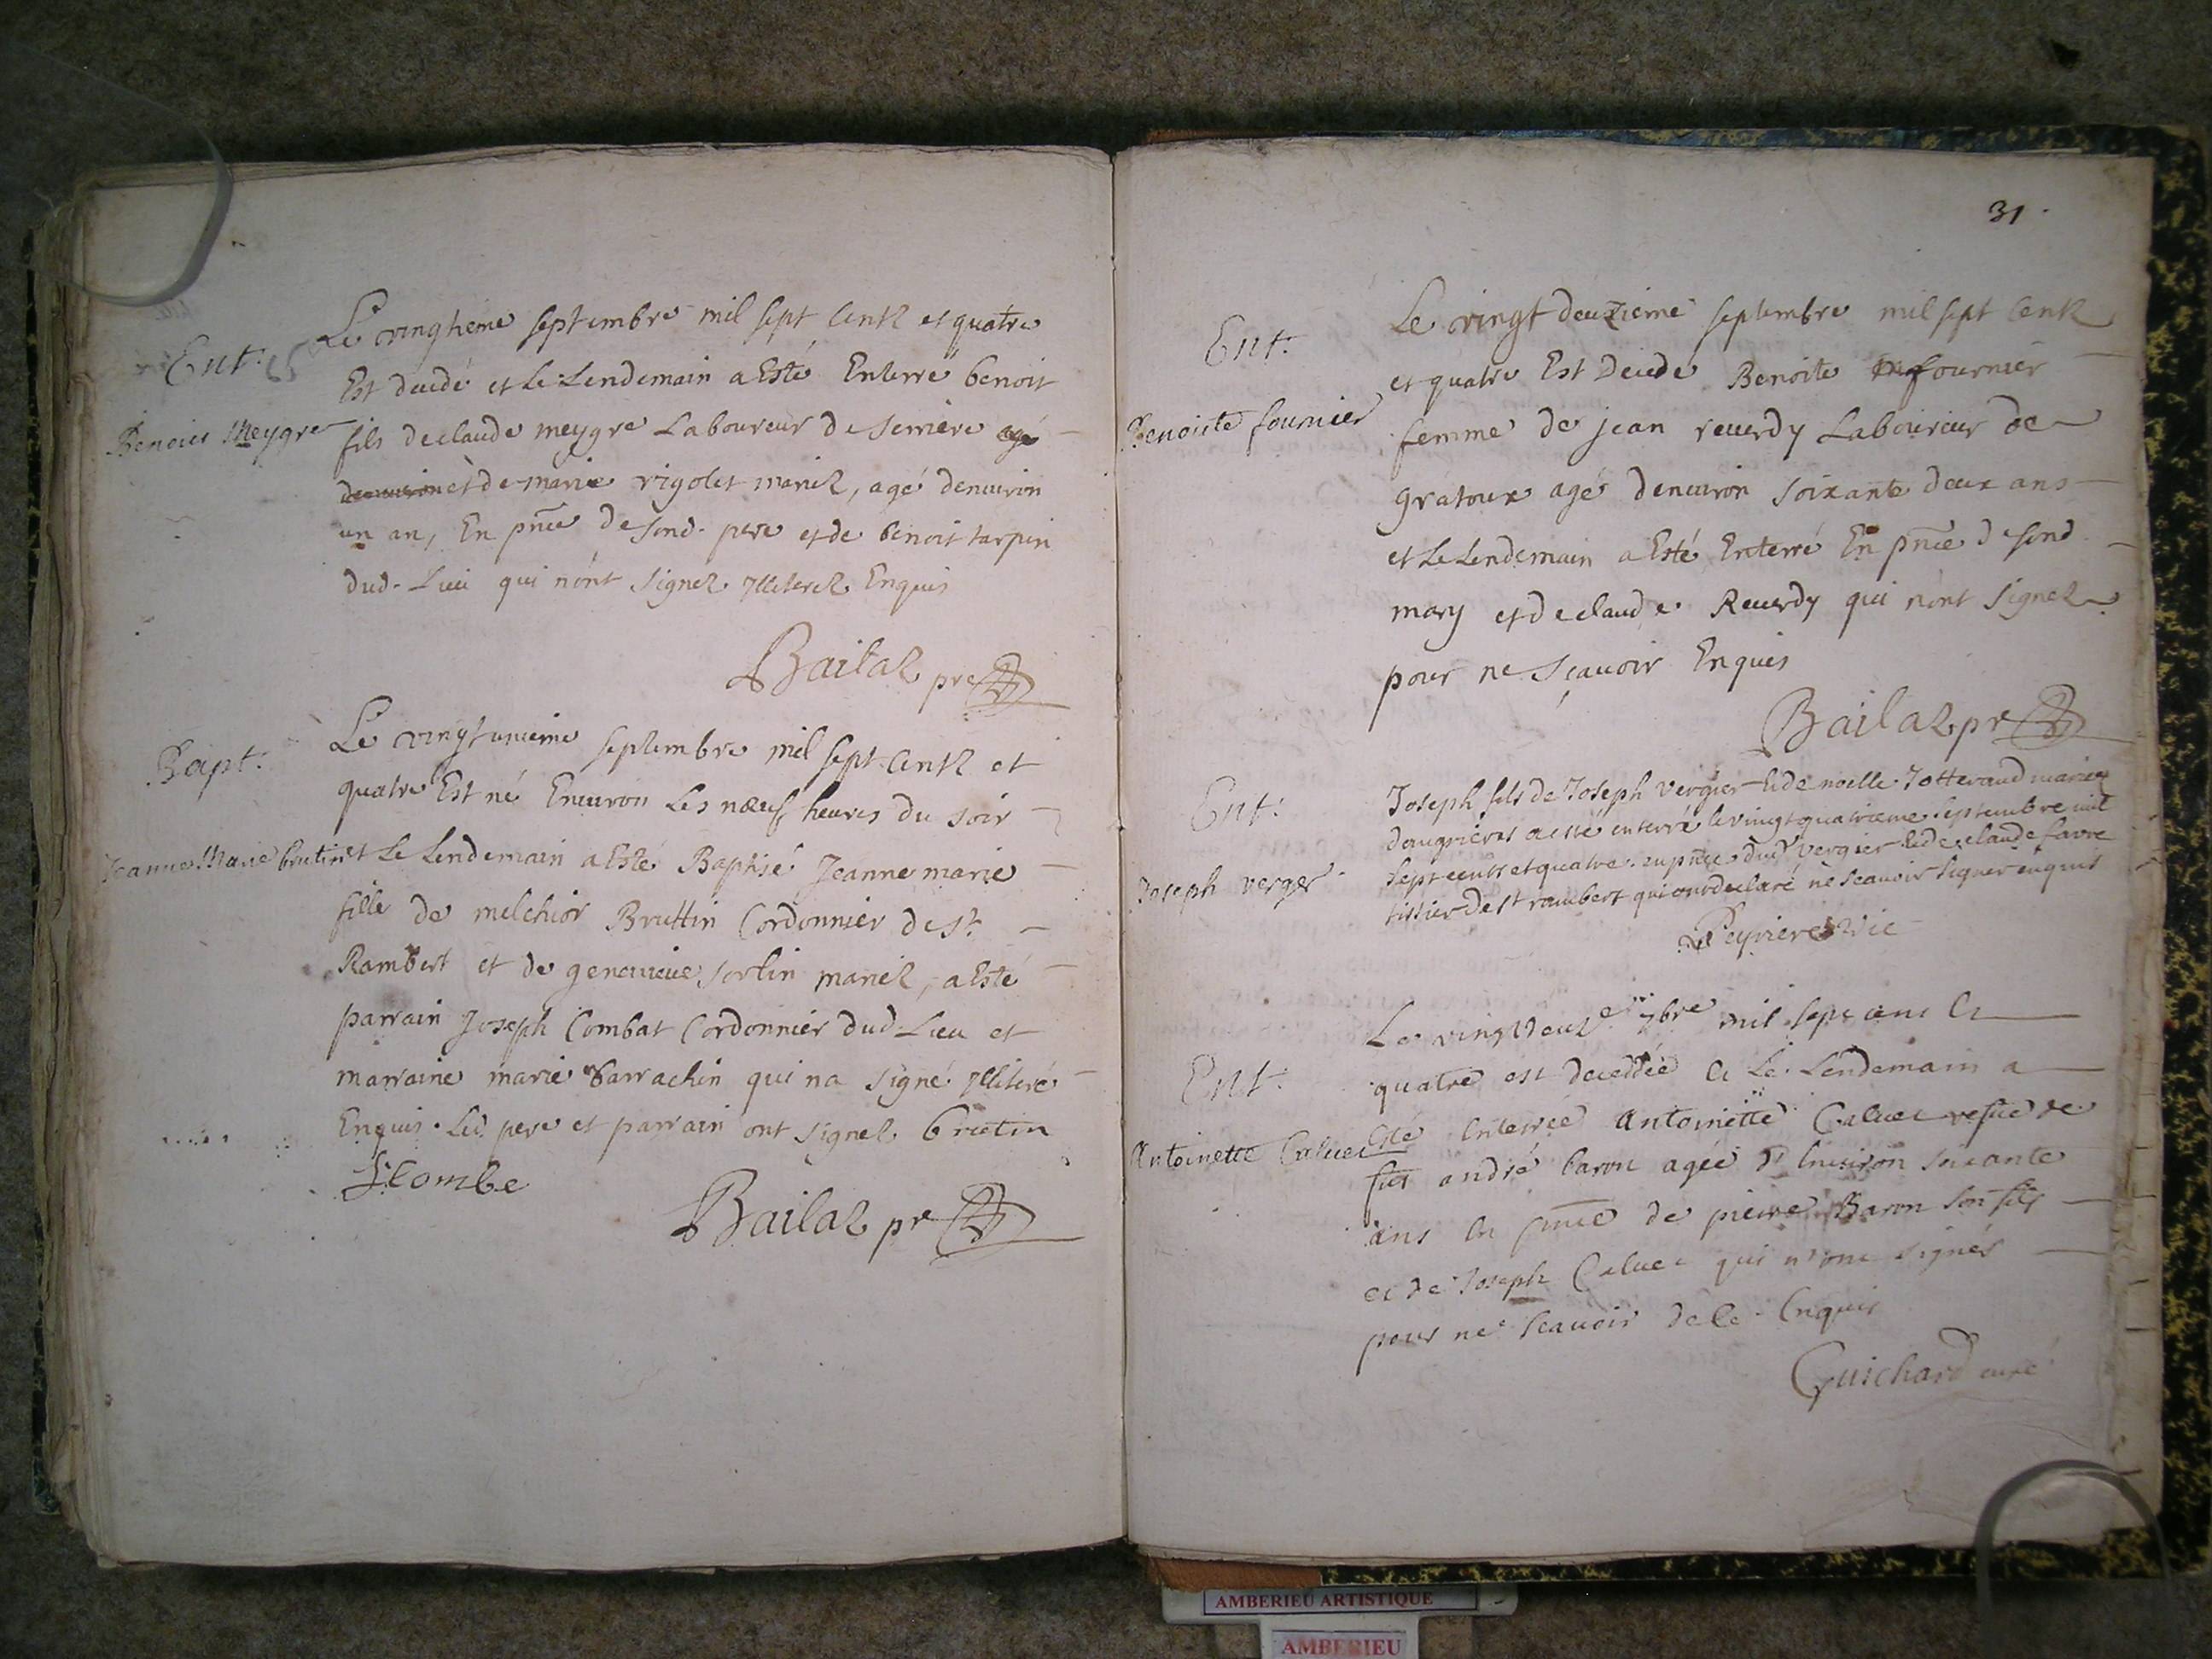 Ent.
Benoict Meygre
Le vingtieme septembre mil sept centz et quatre
Est décédé et Le Lendemain a Esté Enterré benoit
fils de claude meygre Laboureur de serriere agé
et de marie rigolet mariez, agé denuiron
un an, En pnce de sond. pere et de benoit tarpin
dud. Lieu qui nont signez Illiterez Enquis
Bailaz pre
Bapt.
Jeanne Marie brutin
Le vingt unieme septembre mil sept centz et
quatre Est né Enuiron Les nœuf heures du soir
et Le Lendemain a Esté Baptisé Jeanne marie
fille de melchior Bruttin Cordonnier de St.
Rambert et de geneuieue sorlin mariez, a Esté
parrain Joseph Combat Cordonnier dud Lieu et
marraine marie barrachin qui na signé Illiteré
Enquis. Led pere et parrain ont signez brutin
J Combe
Bailaz pre
31.
Ent.
Benoiste fournier
Le vingt deuzieme septembre mil sept centz
et quatre Est Decedé Benoite fournier
femme de jean reuerdy Laboureur de
gratoux agé denuiron soixante deux ans
et Le Lendemain a Esté Enterré En pnce de sond
mary et de claude Reuerdy qui nont signez
pour ne sçauoir Enquis
Bailaz pre
Ent.
Joseph verger
Joseph fils de Joseph Vergier et de noelle Jotteraud mariez
daugrieres a esté enterré le vingt quatrieme septembre mil
sept cents et quatre en pnce dud vergier et de claude favre
tissier de st rambert qui ont declaré ne scauoir signer enquis
Peyriere vic
Ent.
Antoinette Caluet
Le vingt deuz e 7bre mil sept cent et
quatre est decedée et Le Lendemain a
esté Enterrée Antoinette Caluet vefue de
fut andré baron agée d'Enuiron soixante
ans En pnce de pierre Baron son fils
et de Joseph Caluet qui n'ont signés
pour ne scauoir de ce Enquis
Guichard curé
AMBERIEU ARTISTIQUE
AMBERIEU